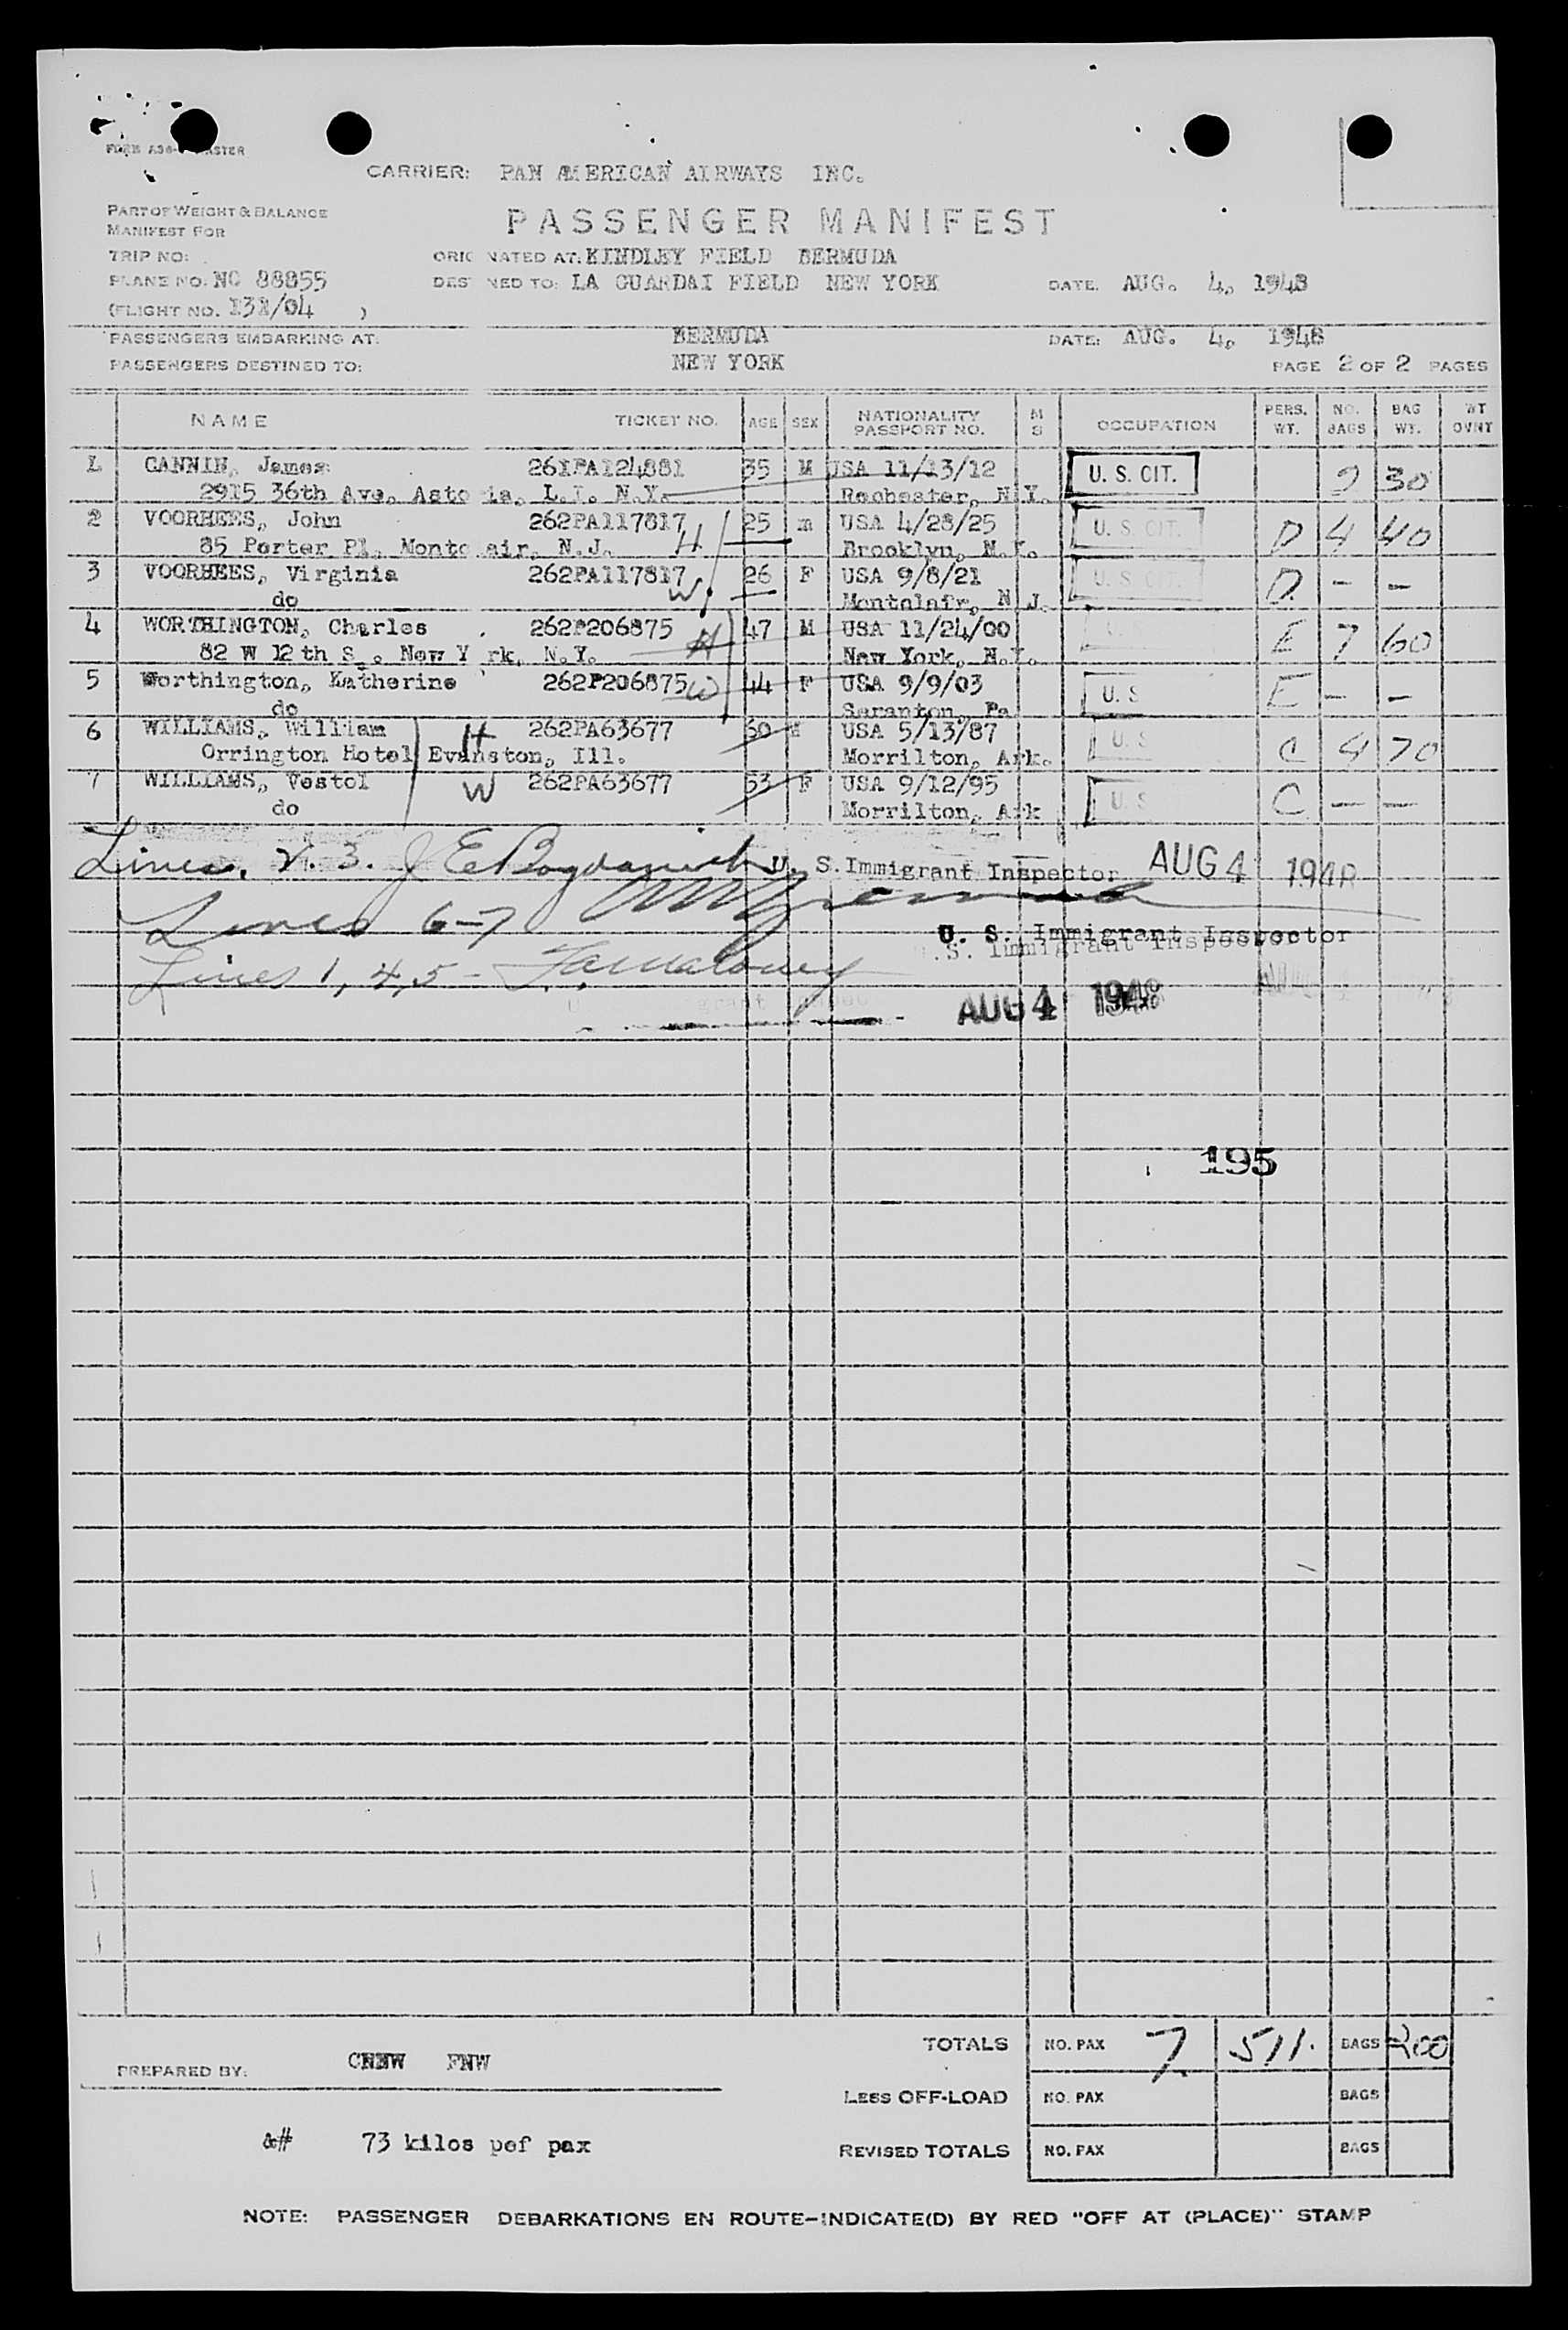 CARRIER: PAN AMERICAN AIRWAYS INC.
PART OF WEIGHT & BALANCE
MANIFEST FOR
PASSENGER MANIFEST
TRIP NO:
ORIG NATED AT: KINDLEY FIELD BERMUDA
PLANE NO. NC 88855
DES NED TO: LA GUARDAI FIELD NEW YORK
DATE: AUG. 4, 1948
(FLIGHT NO. 131/04 )
PASSENGERS EMBARKING AT: BERMUDA DATE: AUG. 4, 1948
PASSENGERS DESTINED TO: NEW YORK PAGE 2 OF 2 PAGES
NAME TICKET NO. AGE SEX NATIONALITY PASSPORT NO. M S OCCUPATION PERS. WT. NO. BAGS BAG WT. WT OVNT
1 CANNIN, James 261PA124881 35 M USA 11/13/12 U. S. CIT. 30
2915 36th Ave. Asto ia, L.I. N.Y. Rochester, N.Y.
2 VOORHEES, John 262PA117817 25 m USA 4/28/25 U. S. CIT. D 4 40
85 Porter Pl. Montc air, N.J. H Brooklyn, N.Y.
3 VOORHEES, Virginia 262PA117817 26 F USA 9/8/21 U. S. CIT. D - -
do W Montclair, N.J.
4 WORTHINGTON, Charles 262P206875 H 47 M USA 11/24/00 E 7 60
82 W 12th S . New Y rk, N.Y. New York, N.Y.
5 Worthington, Katherine 262P206875 W 44 F USA 9/9/03 U. S E - -
do Scranton, Pa
6 WILLIAMS, William H 262PA63677 60 USA 5/13/87 U. S C 4 70
Orrington Hotel Evanston, Ill. Morrilton, Ark.
7 WILLIAMS, Vestol W 262PA63677 53 F USA 9/12/95 U. S C - -
do Morrilton, Ark
Lines. 2. 3. J E Bogdanich U. S. Immigrant Inspector AUG 4 1948
Lines 6-7
U. S. Immigrant Inspector
Lines 1, 4, 5 - Maloney
AUG 4 1948
195
TOTALS NO. PAX 7 511. BAGS 200
PREPARED BY: FNW
LESS OFF-LOAD NO. PAX BAGS
&# 73 kilos pef pax
REVISED TOTALS NO. PAX BAGS
NOTE: PASSENGER DEBARKATIONS EN ROUTE-INDICATE(D) BY RED "OFF AT (PLACE)" STAMP